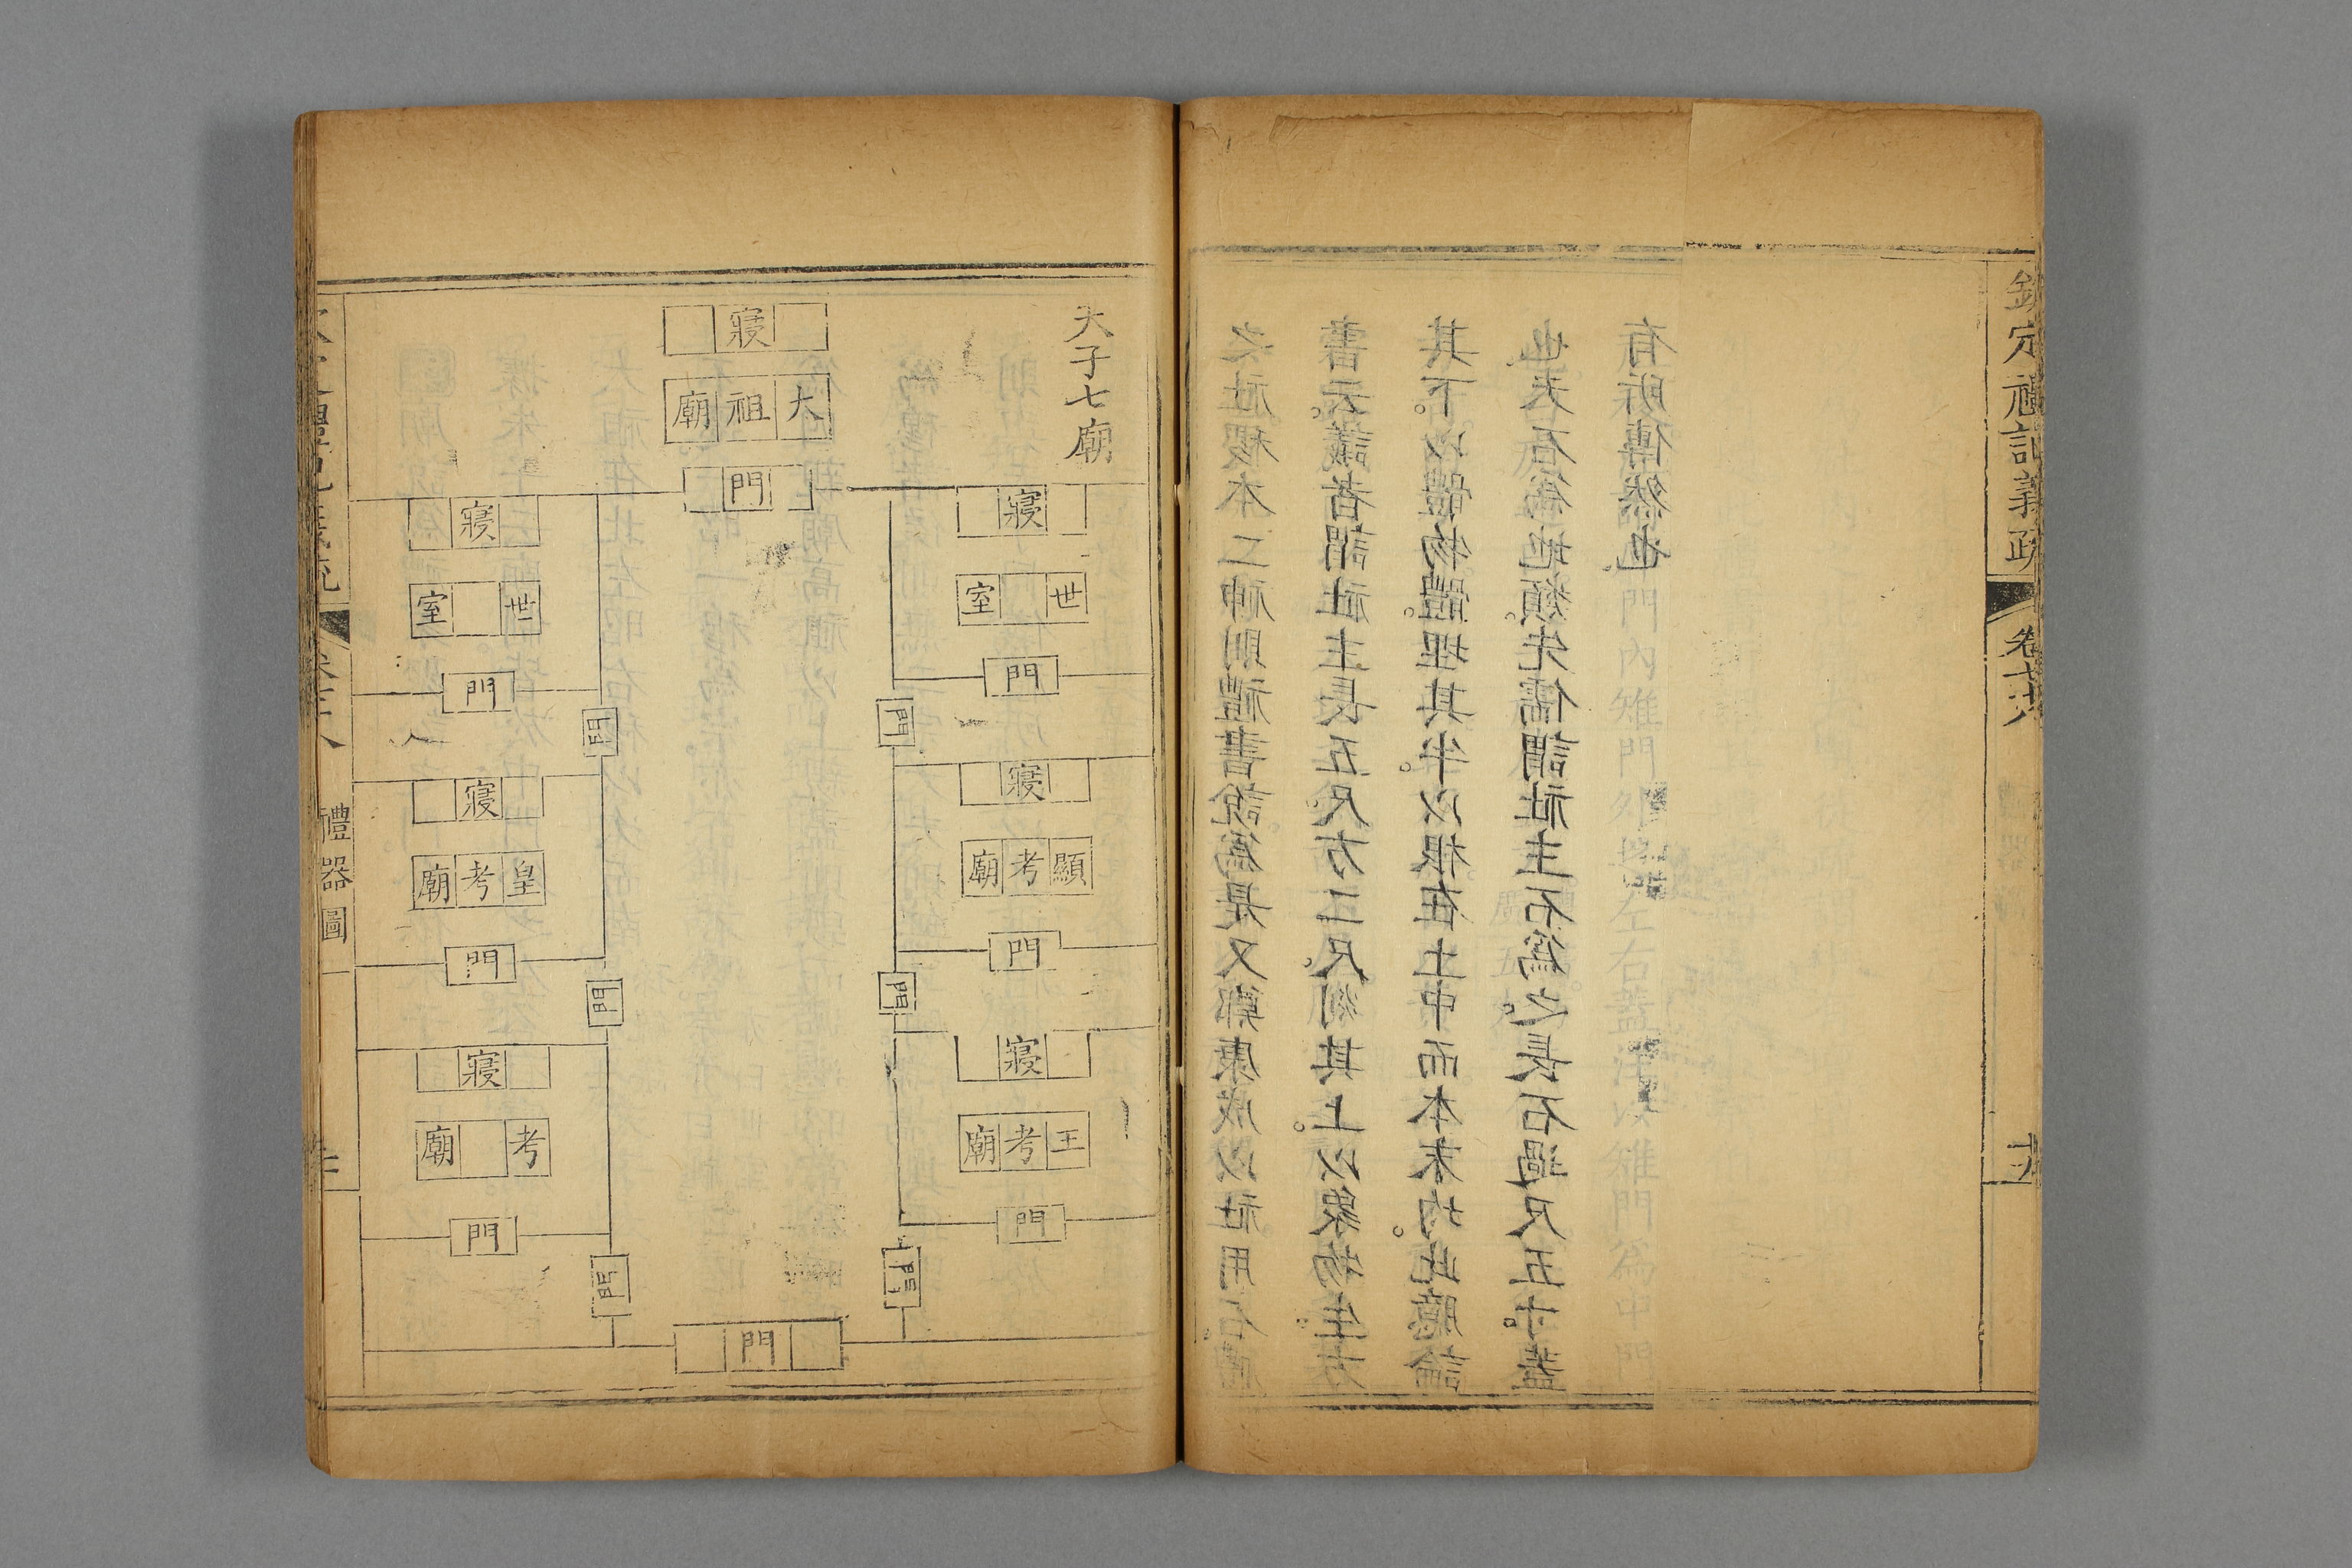 欽定禮記義疏
卷七十八
社稷本二神則禮書說爲是又鄭康成以社用石
書云。議者謂社主長五尺方二尺。剡其上。以象物生。方
其下。以體物體。埋其半。以根在土中而本末均。此臆論
也。夫石爲地類。先儒謂社主石爲之。長石過尺五寸。蓋
有所傳然也。
天子七廟
寢
大祖廟
門
寢
世室
門
門
寢
顯考廟
門
門
寢
王考廟
門
門
寢
世室
門
門
寢
皇考廟
門
門
寢
考廟
門
門
門
禮器圖